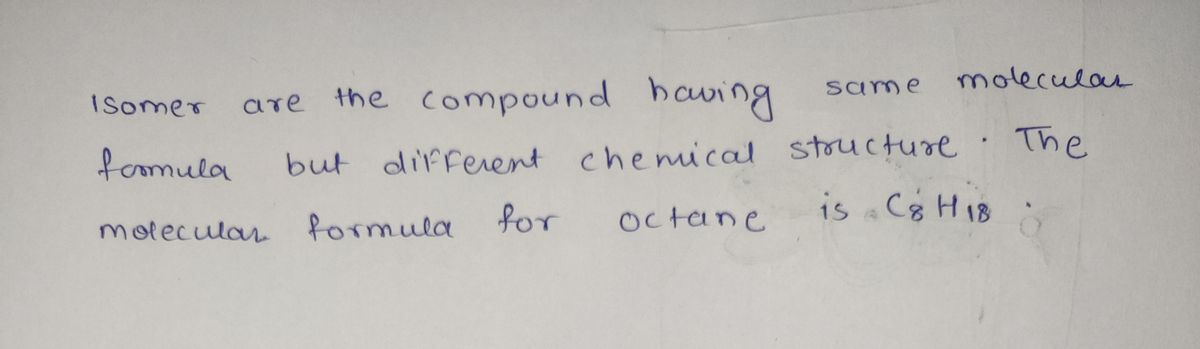 Isomer are the compound having same molecular
formula but different chemical structure. The
molecular formula for octane is C8 H18.